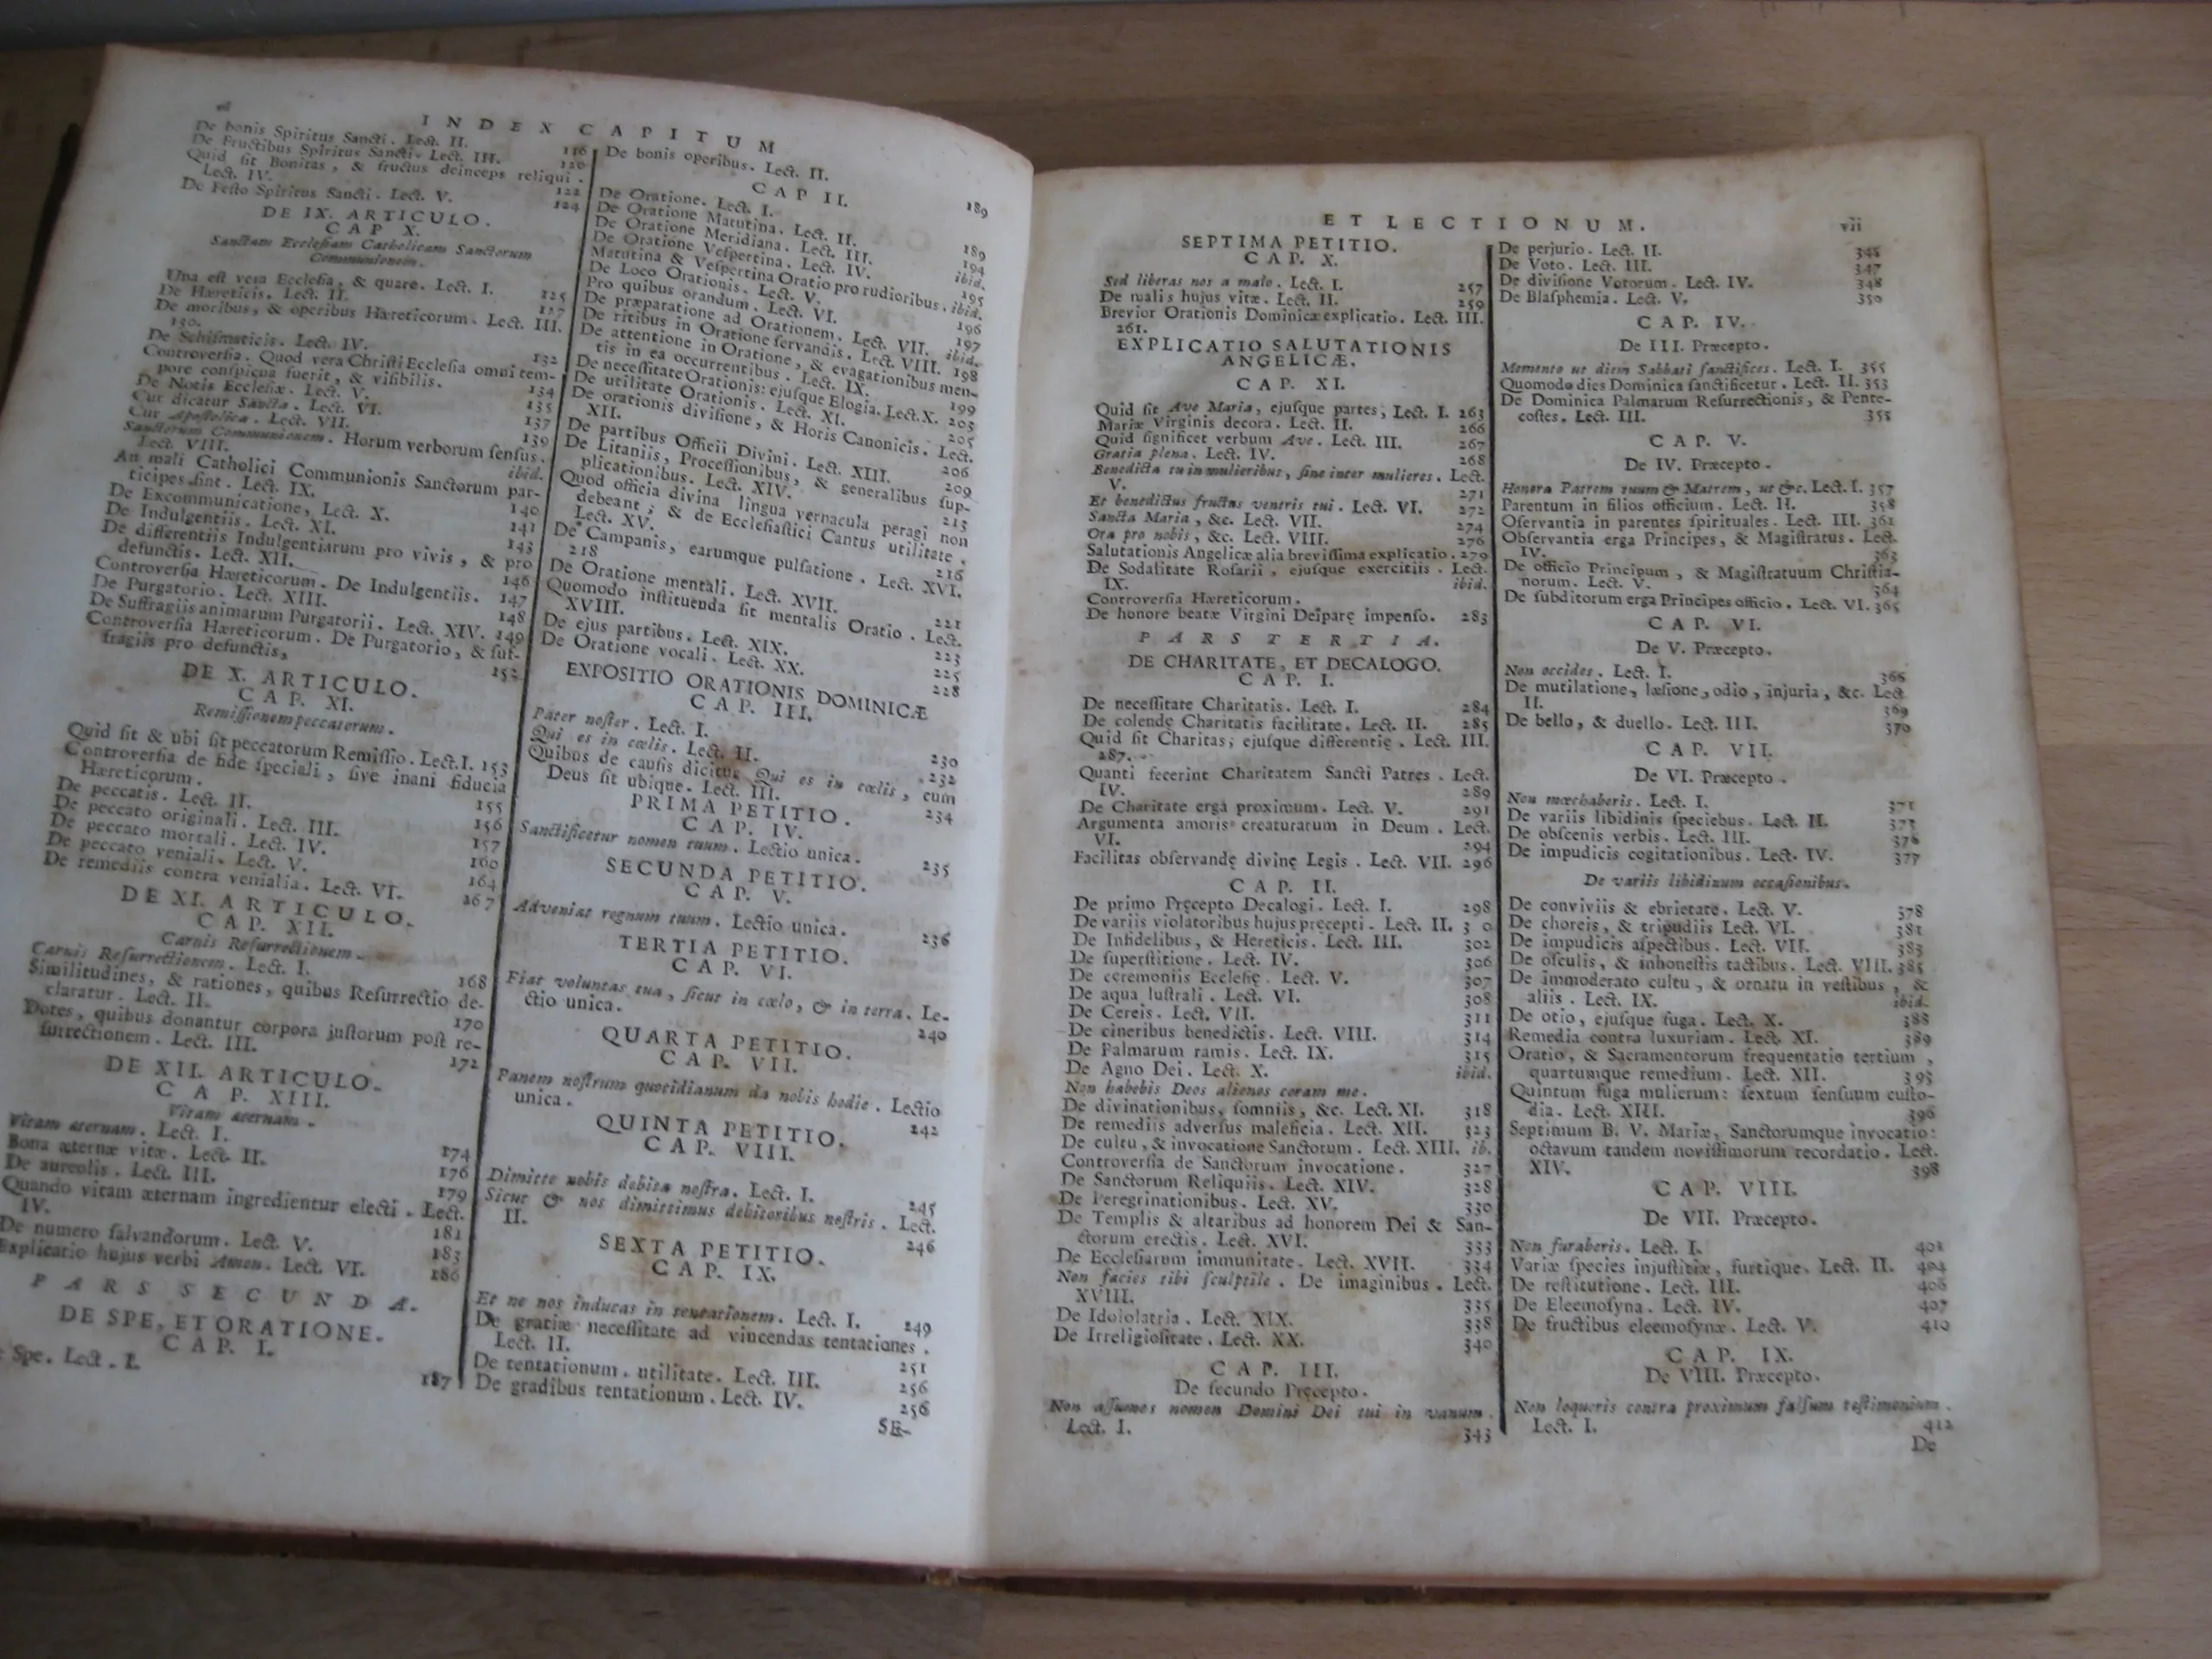 vi
INDEX CAPITUM
De bonis Spiritus Sancti. Lect. II. 116
De Fructibus Spiritus Sancti. Lect. III. 120
Quid ſit Bonitas, & fructus deinceps reliqui.
Lect. IV. 122
De Feſto Spiritus Sancti. Lect. V. 124
DE IX. ARTICULO.
CAP X.
Sanctam Eccleſiam Catholicam Sanctorum
Communionem.
Una eſt vera Eccleſia, & quare. Lect. I. 125
De Hæreticis. Lect. II. 127
De moribus, & operibus Hæreticorum. Lect. III.
130.
De Schiſmaticis. Lect. IV. 132
Controverſia. Quod vera Chriſti Eccleſia omni tem-
pore conſpicua fuerit, & viſibilis. 134
De Notis Eccleſiæ. Lect. V. 135
Cur dicatur Sancta. Lect. VI. 137
Cur Apoſtolica. Lect. VII. 139
Sanctorum Communionem. Horum verborum ſenſus.
Lect. VIII. ibid.
An mali Catholici Communionis Sanctorum par-
ticipes ſint. Lect. IX. 140
De Excommunicatione, Lect. X. 141
De Indulgentiis. Lect. XI. 143
De differentiis Indulgentiarum pro vivis, & pro
defunctis. Lect. XII. 146
Controverſia Hæreticorum. De Indulgentiis. 147
De Purgatorio. Lect. XIII. 148
De Suffragiis animarum Purgatorii. Lect. XIV. 149
Controverſia Hæreticorum. De Purgatorio, & ſuf-
fragiis pro defunctis, 152
DE X. ARTICULO.
CAP. XI.
Remiſſionem peccatorum.
Quid ſit & ubi ſit peccatorum Remiſſio. Lect. I. 153
Controverſia de fide ſpeciali, ſive inani fiducia
Hæreticorum. 155
De peccatis. Lect. II. 156
De peccato originali. Lect. III. 157
De peccato mortali. Lect. IV. 160
De peccato veniali. Lect. V. 164
De remediis contra venialia. Lect. VI. 167
DE XI. ARTICULO.
CAP. XII.
Carnis Reſurrectionem.
Carnis Reſurrectionem. Lect. I. 168
Similitudines, & rationes, quibus Reſurrectio de-
claratur. Lect. II. 170
Dotes, quibus donantur corpora juſtorum poſt re-
ſurrectionem. Lect. III. 172
DE XII. ARTICULO.
CAP. XIII.
Vitam æternam.
Vitam æternam. Lect. I. 174
Bona æternæ vitæ. Lect. II. 176
De aureolis. Lect. III. 179
Quando vitam æternam ingredientur electi. Lect.
IV. 181
De numero ſalvandorum. Lect. V. 183
Explicatio hujus verbi Amen. Lect. VI. 186
PARS SECUNDA.
DE SPE, ET ORATIONE.
CAP. I.
Spe. Lect. I. 187
De bonis operibus. Lect. II. 189
CAP II.
De Oratione. Lect. I. 189
De Oratione Matutina. Lect. II. 194
De Oratione Meridiana. Lect. III. ibid.
De Oratione Veſpertina. Lect. IV. 195
Matutina & Veſpertina Oratio pro rudioribus. ibid.
De Loco Orationis. Lect. V. 196
Pro quibus orandum. Lect. VI. 197
De præparatione ad Orationem. Lect. VII. ibid.
De ritibus in Oratione ſervandis. Lect. VIII. 198
De attentione in Oratione, & evagationibus men-
tis in ea occurrentibus. Lect. IX. 199
De neceſſitate Orationis: ejuſque Elogia. Lect. X. 203
De utilitate Orationis. Lect. XI. 205
De orationis diviſione, & Horis Canonicis. Lect.
XII. 206
De partibus Officii Divini. Lect. XIII. 209
De Litaniis, Proceſſionibus, & generalibus ſup-
plicationibus. Lect. XIV. 213
Quod officia divina lingua vernacula peragi non
debeant; & de Eccleſiaſtici Cantus utilitate.
Lect. XV. 216
De Campanis, earumque pulſatione. Lect. XVI.
218
De Oratione mentali. Lect. XVII. 221
Quomodo inſtituenda ſit mentalis Oratio. Lect.
XVIII. 223
De ejus partibus. Lect. XIX. 225
De Oratione vocali. Lect. XX. 228
EXPOSITIO ORATIONIS DOMINICÆ
CAP. III.
Pater noſter. Lect. I. 230
Qui es in cœlis. Lect. II. 232
Quibus de cauſis dicitur Qui es in cœlis, cum
Deus ſit ubique. Lect. III. 234
PRIMA PETITIO.
CAP. IV.
Sanctificetur nomen tuum. Lectio unica. 235
SECUNDA PETITIO.
CAP. V.
Adveniat regnum tuum. Lectio unica. 236
TERTIA PETITIO.
CAP. VI.
Fiat voluntas tua, ſicut in cœlo, & in terra. Le-
ctio unica. 240
QUARTA PETITIO.
CAP. VII.
Panem noſtrum quotidianum da nobis hodie. Lectio
unica. 242
QUINTA PETITIO.
CAP. VIII.
Dimitte nobis debita noſtra. Lect. I. 245
Sicut & nos dimittimus debitoribus noſtris. Lect.
II. 246
SEXTA PETITIO.
CAP. IX.
Et ne nos inducas in tentationem. Lect. I. 249
De gratiæ neceſſitate ad vincendas tentationes.
Lect. II. 251
De tentationum. utilitate. Lect. III. 256
De gradibus tentationum. Lect. IV. 256
SE-
ET LECTIONUM.
vii
SEPTIMA PETITIO.
CAP. X.
Sed liberas nos a malo. Lect. I. 257
De malis hujus vitæ. Lect. II. 259
Brevior Orationis Dominicæ explicatio. Lect. III.
261.
EXPLICATIO SALUTATIONIS
ANGELICÆ.
CAP. XI.
Quid ſit Ave Maria, ejuſque partes, Lect. I. 263
Mariæ Virginis decora. Lect. II. 266
Quid ſignificet verbum Ave. Lect. III. 267
Gratia plena. Lect. IV. 268
Benedicta tu in mulieribus, ſine inter mulieres. Lect.
V. 271
Et benedictus fructus ventris tui. Lect. VI. 272
Sancta Maria, &c. Lect. VII. 274
Ora pro nobis, &c. Lect. VIII. 276
Salutationis Angelicæ alia breviſſima explicatio. 279
De Sodalitate Roſarii, ejuſque exercitiis. Lect.
IX. ibid.
Controverſia Hæreticorum.
De honore beatæ Virgini Deiparę impenſo. 283
PARS TERTIA.
DE CHARITATE, ET DECALOGO.
CAP. I.
De neceſſitate Charitatis. Lect. I. 284
De colendę Charitatis facilitate. Lect. II. 285
Quid ſit Charitas; ejuſque differentię. Lect. III.
287.
Quanti fecerint Charitatem Sancti Patres. Lect.
IV. 289
De Charitate erga proximum. Lect. V. 291
Argumenta amoris creaturarum in Deum. Lect.
VI. 294
Facilitas obſervandę divinę Legis. Lect. VII. 296
CAP. II.
De primo Pręcepto Decalogi. Lect. I. 298
De variis violatoribus hujus pręcepti. Lect. II. 3 0
De Infidelibus, & Hereticis. Lect. III. 302
De ſuperſtitione. Lect. IV. 306
De ceremoniis Eccleſię. Lect. V. 307
De aqua luſtrali. Lect. VI. 308
De Cereis. Lect. VII. 311
De cineribus benedictis. Lect. VIII. 314
De Palmarum ramis. Lect. IX. 315
De Agno Dei. Lect. X. ibid.
Non habebis Deos alienos coram me.
De divinationibus, ſomniis, &c. Lect. XI. 318
De remediis adverſus maleficia. Lect. XII. 323
De cultu, & invocatione Sanctorum. Lect. XIII. ib.
Controverſia de Sanctorum invocatione. 327
De Sanctorum Reliquiis. Lect. XIV. 328
De Peregrinationibus. Lect. XV. 330
De Templis & altaribus ad honorem Dei & San-
ctorum erectis. Lect. XVI. 333
De Eccleſiarum immunitate. Lect. XVII. 334
Non facies tibi ſculptile. De imaginibus. Lect.
XVIII. 335
De Idololatria. Lect. XIX. 338
De Irreligioſitate. Lect. XX. 340
CAP. III.
De ſecundo Pręcepto.
Non aſſumes nomen Domini Dei tui in vanum.
Lect. I. 343
De perjurio. Lect. II. 345
De Voto. Lect. III. 347
De diviſione Votorum. Lect. IV. 348
De Blaſphemia. Lect. V. 350
CAP. IV.
De III. Præcepto.
Memento ut diem Sabbati ſanctifices. Lect. I. 355
Quomodo dies Dominica ſanctificetur. Lect. II. 353
De Dominica Palmarum Reſurrectionis, & Pente-
coſtes. Lect. III. 355
CAP. V.
De IV. Præcepto.
Honora Patrem tuum & Matrem, ut &c. Lect. I. 357
Parentum in filios officium. Lect. II. 358
Oſervantia in parentes ſpirituales. Lect. III. 361
Obſervantia erga Principes, & Magiſtratus. Lect.
IV. 363
De officio Principum, & Magiſtratuum Chriſtia-
norum. Lect. V. 364
De ſubditorum erga Principes officio. Lect. VI. 365
CAP. VI.
De V. Præcepto.
Non occides. Lect. I. 366
De mutilatione, læſione, odio, injuria, &c. Lect
II. 369
De bello, & duello. Lect. III. 370
CAP. VII.
De VI. Præcepto.
Non mœchaberis. Lect. I. 371
De variis libidinis ſpeciebus. Lect. II. 373
De obſcenis verbis. Lect. III. 376
De impudicis cogitationibus. Lect. IV. 377
De variis libidinum occaſionibus.
De conviviis & ebrietate. Lect. V. 378
De choreis, & tripudiis Lect. VI. 381
De impudicis aſpectibus. Lect. VII. 383
De oſculis, & inhoneſtis tactibus. Lect. VIII. 385
De immoderato cultu, & ornatu in veſtibus, &
aliis. Lect. IX. ibid.
De otio, ejuſque fuga. Lect. X. 388
Remedia contra luxuriam. Lect. XI. 389
Oratio, & Sacramentorum frequentatio tertium,
quartumque remedium. Lect. XII. 395
Quintum fuga mulierum: ſextum ſenſuum cuſto-
dia. Lect. XIII. 396
Septimum B. V. Mariæ, Sanctorumque invocatio:
octavum tandem noviſſimorum recordatio. Lect.
XIV. 398
CAP. VIII.
De VII. Præcepto.
Non furaberis. Lect. I. 401
Variæ ſpecies injuſtitiæ, furtique. Lect. II. 404
De reſtitutione. Lect. III. 406
De Eleemoſyna. Lect. IV. 407
De fructibus eleemoſynæ. Lect. V. 410
CAP. IX.
De VIII. Præcepto.
Non loqueris contra proximum falſum teſtimonium.
Lect. I. 412
De